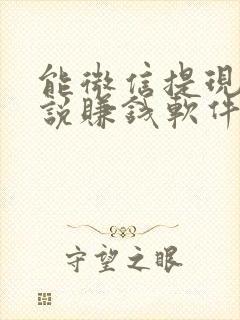 能微信提現
說賺錢軟件
守望之眼